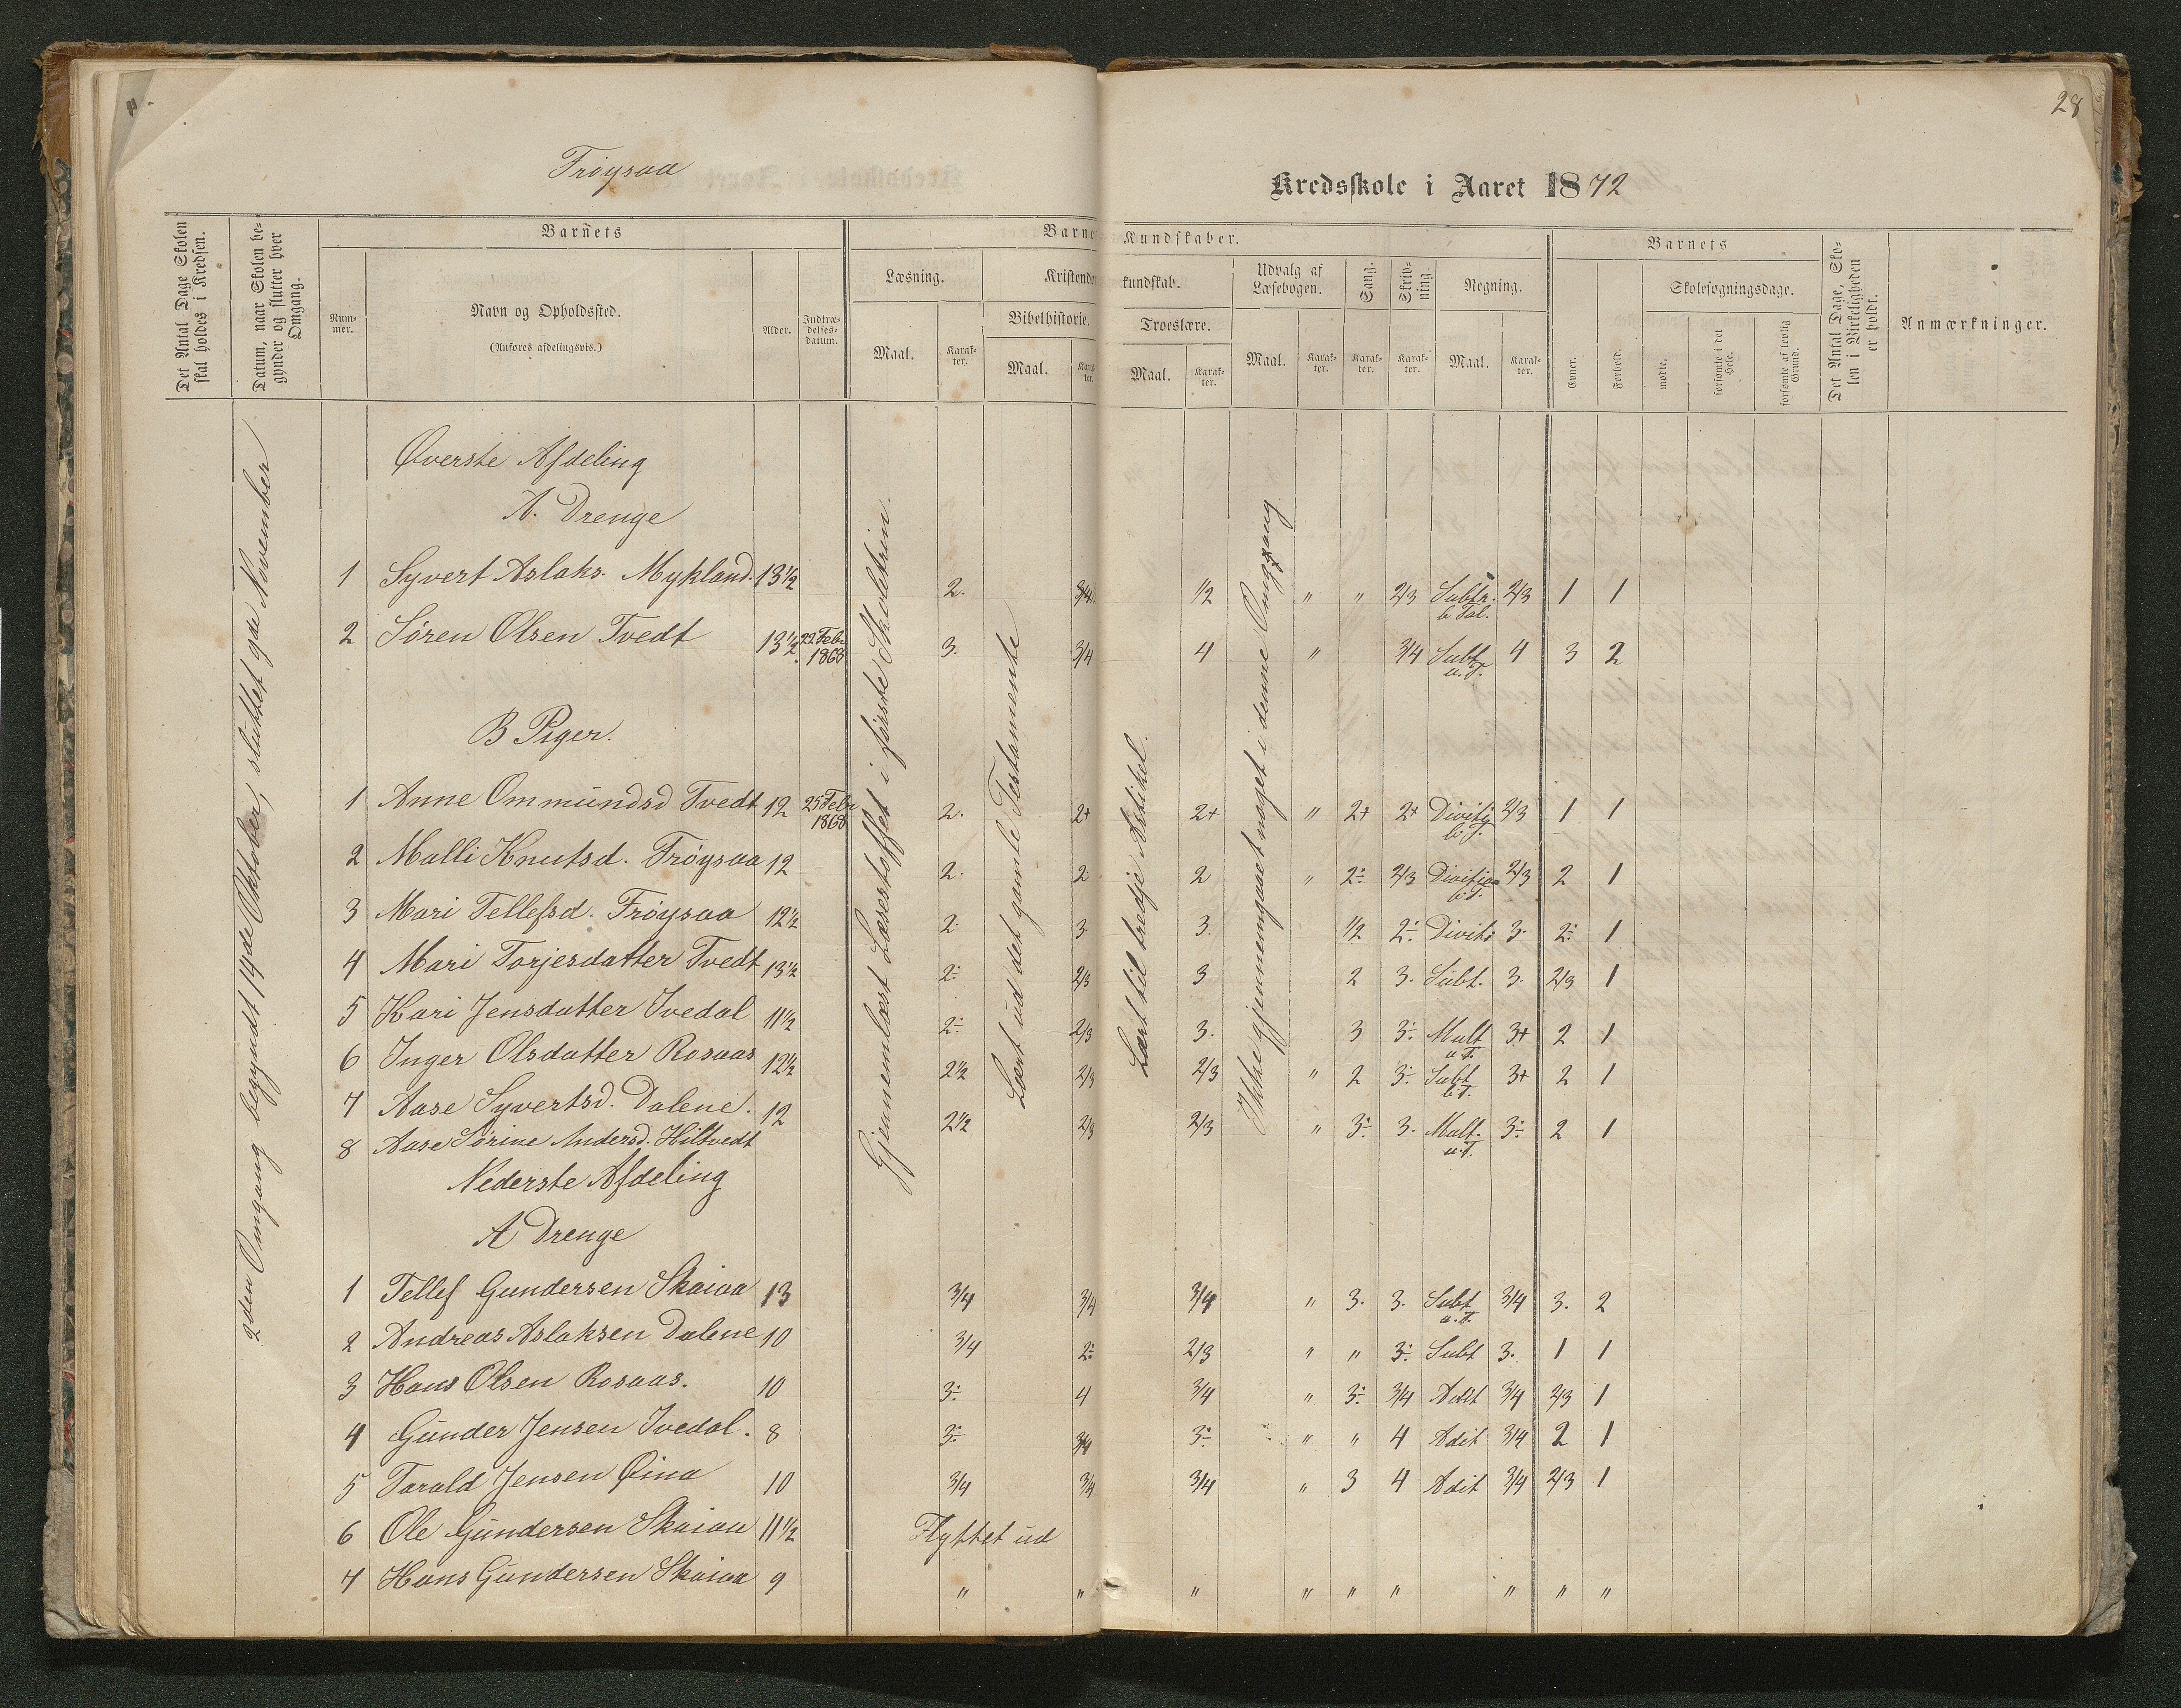 28
Frøysaa
Kredsskole i Aaret 1872
Det Antal Dage Skolen skal holdes i Kredsen.
Datum, naar Skolen begynder og slutter hver Omgang.
Barnets
Nummer.
Navn og Opholdssted.
(Anføres afdelingsvis.)
Alder.
Indtrædelsesdatum.
Læsning.
Maal.
Karakter.
Kristendo
Bibelhistorie.
Maal.
Barne
Kundskaber.
kundskab.
Troeslære.
Maal.
Karakter.
Udvalg af Læsebogen.
Maal.
Karakter.
Sang.
Karakter.
Skrivning.
Karakter.
Regning.
Maal.
Karakter.
Barnets
Evner.
Forhold.
Skolesøgningsdage.
mødte.
forsømte i det Hele.
forsømte af lovlig Grund.
Det Antal Dage, Skolen i Virkeligheden er holdt.
Anmærkninger.
2den Omgang begyndt 14de Oktober, sluttet 9de November
Gjennemlæst Læsestoffet i første Skoletrin.
Lært ud det gamle Testamente
Lært til tredje Artikel.
Ikke gjennemgaaet noget i denne Omgang
Øverste Afdeling
A. Drenge
1 Syvert Aslaks. Mykland. 13½ 2. 3/4 1/2 " " 2/3 Subtr. b Tal. 2/3 1 1
2 Søren Olsen Tvedt 13½ 22 Febr 1868 3. 3/4 4 " 3/4 Subt. u.T. 4 3 2
B Piger.
1 Anne Ommundsd Tvedt 12 25 Febr 1868 2. 2+ 2+ " 2+ 2+ Divis b.T. 2/3 1 1
2 Malli Knutsd. Frøysaa 12 2. 2 2 " 2÷ 2/3 Division b.T. 2/3 2 1
3 Mari Tellefsd. Frøysaa 12½ 2. 3. 3. 1/2 2÷ Divis 3. 2÷ 1
4 Mari Torjesdatter Tvedt 13½ 2÷ 2/3 3 2 3. Subt. 3. 2/3 1
5 Kari Jensdatter Ivedal 11½ 2÷ 2/3 3. 3 3÷ Mult u T. 3+ 2 1
6 Inger Olsdatter Rosaas 12½ 2½ 2/3 2/3 " 2 3÷ Subt b.T. 3+ 2 1
7 Aase Syvertsd. Dalene. 12 2½ 2/3 2/3 " 3÷ 3. Mult. u.T. 3÷ 2 1
8 Aase Sørine Andersd. Hiltvedt
Nederste Afdeling
A Drenge
1 Tellef Gundersen Skaiaa 13 3/4 3/4 3/4 " 3. 3. Subt u.T. 3/4 3. 2
2 Andreas Aslaksen Dalene 10 3/4 2÷ 2/3 " " 3÷ Subt 3. 1 1
3 Hans Olsen Rosaas. 10 3÷ 4 3/4 " 3÷ 3/4 Adit 3/4 2/3 1
4 Gunder Jensen Ivedal. 8 3÷ 3/4 3÷ " " 4 Adit 3/4 2 1
5 Tarald Jensen Øina 10 3/4 3/4 3/4 " 3 4 Adit 3/4 2/3 1
6 Ole Gundersen Skaiaa 11½ Flyttet ud
7 Hans Gundersen Skaiaa 9 " " " " " " " " "